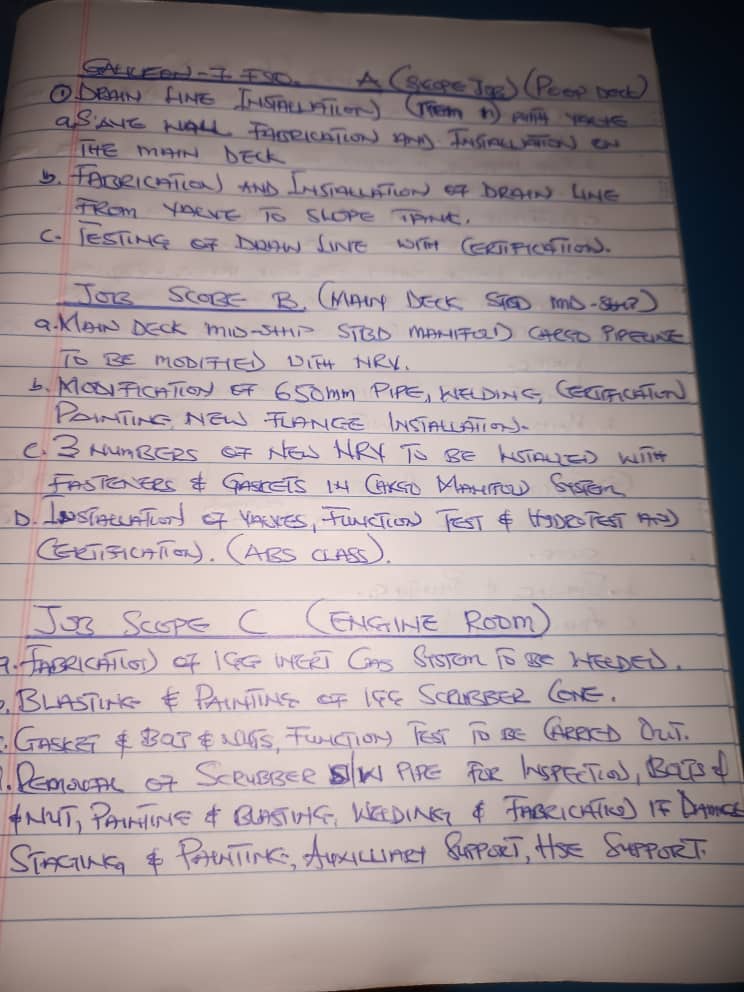 GALLEON-7 FSO. A (SCOPE JOB) (POOP DECK)
① DRAIN LINE INSTALLATION) (ITEM 1) WITH VALVE
a. SAVE WALL FABRICATION AND INSTALLATION ON
THE MAIN DECK
b. FABRICATION AND INSTALLATION OF DRAIN LINE
FROM VALVE TO SLOPE TANK.
C. TESTING OF DRAIN LINE WITH CERTIFICATION.
JOB SCOBE B. (MAIN DECK STBD MID-SHIP)
a. MAIN DECK MID-SHIP STBD MANIFOLD CARGO PIPELINE
TO BE MODIFIED WITH NRV.
b. MODIFICATION OF 650mm PIPE, WELDING, CERTIFICATION
PAINTING, NEW FLANGE INSTALLATION.
C. 3 NUMBERS OF NEW NRV TO BE INSTALLED WITH
FASTENERS & GASKETS IN CARGO MANIFOLD SYSTEM
D. INSTALLATION OF VALVES, FUNCTION TEST & HYDROTEST AND
CERTIFICATION. (ABS CLASS).
JOB SCOPE C (ENGINE ROOM)
FABRICATION OF IGG INERT GAS SYSTEM TO BE WELDED.
BLASTING & PAINTING OF IGG SCRUBBER CONE.
GASKET & BOLT & NUTS, FUNCTION TEST TO BE CARRIED OUT.
REMOVAL OF SCRUBBER S/W PIPE FOR INSPECTION, BOLTS &
& NUT, PAINTING & BLASTING, WELDING & FABRICATION IF DAMAGE
STAGING & PAINTING, AUXILLIARY SUPPORT, HSE SUPPORT.